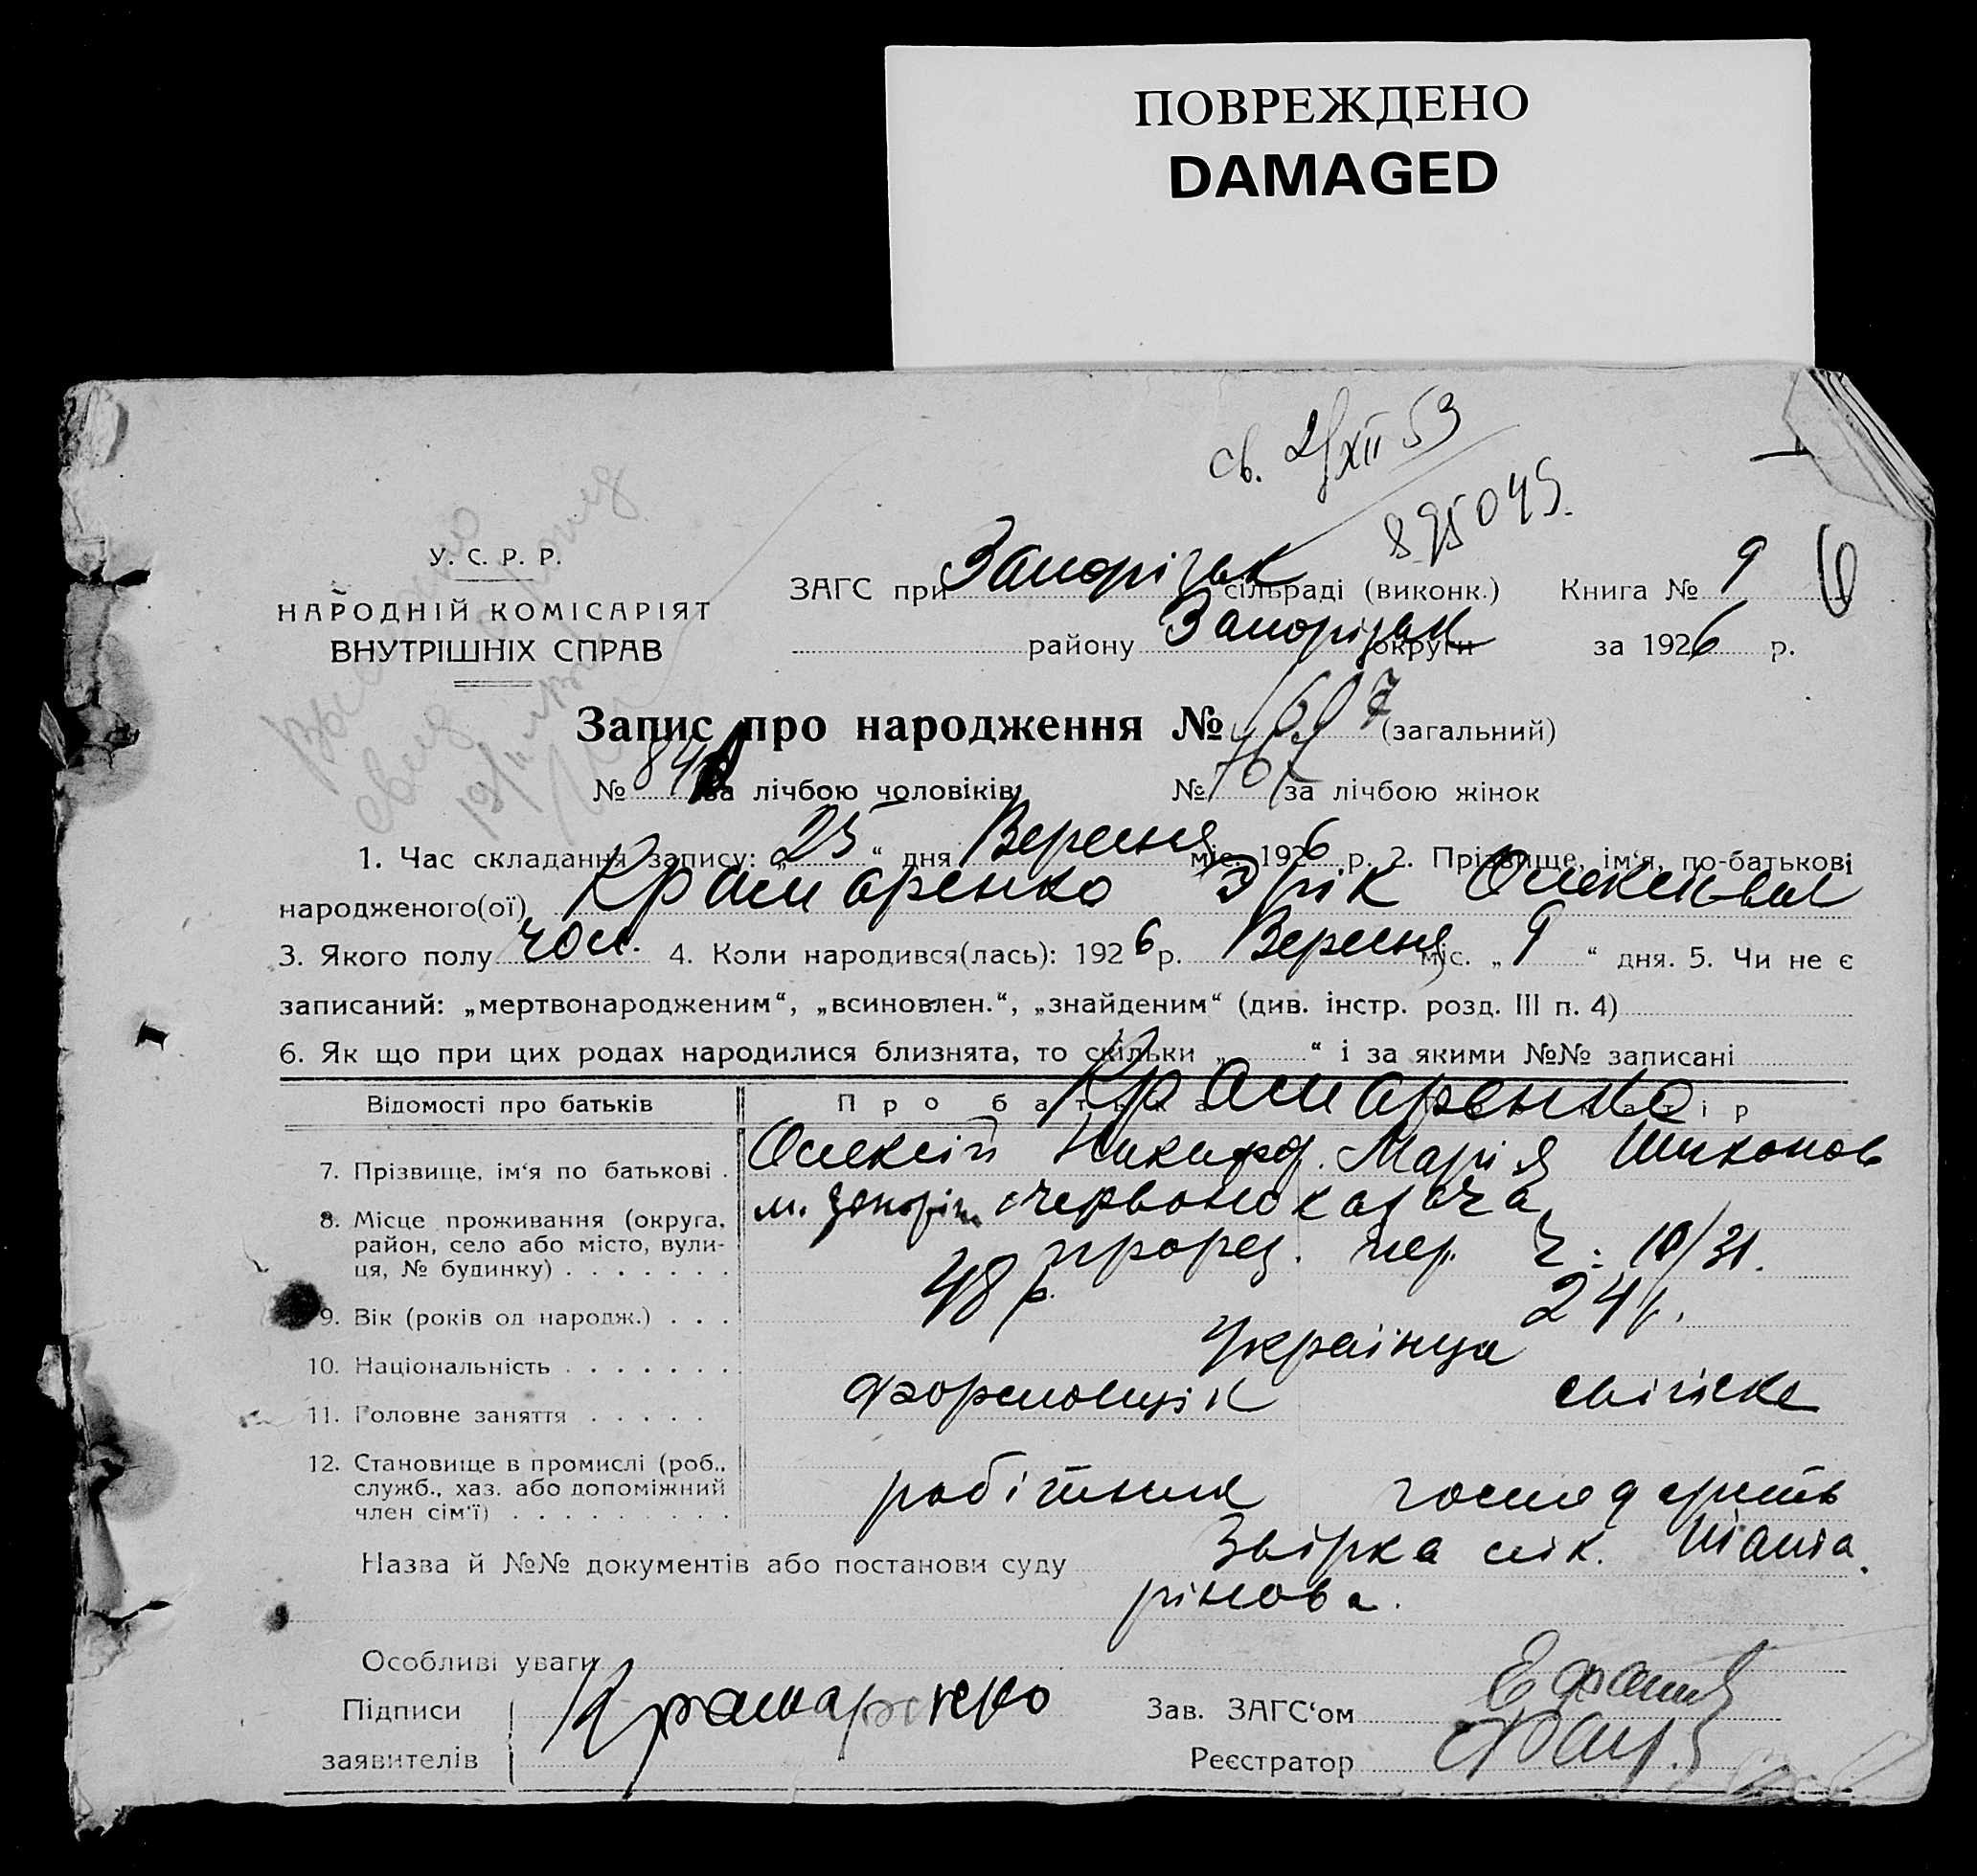 ПОВРЕЖДЕНО
DAMAGED
св. 2/XII 53
895045.
У. С. Р. Р.
НАРОДНІЙ КОМІСАРІЯТ
ВНУТРІШНІХ СПРАВ
ЗАГС при Запорізьк сільраді (виконк.) Книга № 9 6
району Запорізьк округи за 1926 р.
Запис про народження № 1607 (загальний)
№ 840 за лічбою чоловіків № 767 за лічбою жінок
1. Час складання запису: „25“ дня Вересня міс. 1926 р. 2. Прізвище, ім‘я, по-батькові
народженого(ої) Крамаренко Эрік Олексієвич
3. Якого полу чол. 4. Коли народився(лась): 1926 р. Вересня міс. „9“ дня. 5. Чи не є
записаний: „мертвонародженим“, „всиновлен.“, „знайденим“ (див. інстр. розд. III п. 4)
6. Як що при цих родах народилися близнята, то скільки „ “ і за якими №№ записані
Крамаренко
Відомості про батьків Про батька Про матір
7. Прізвище, ім‘я по батькові . Олексій Никиф. Марія
8. Місце проживання (округа, м. Запоріж червоно казача
район, село або місто, вули-
ця, № будинку) . . . . . . . прорез. пер. ч: 10/31.
9. Вік (років од народж.) . . . 48 р. 24 р.
10. Національність . . . . . . . Українця
11. Головне заняття . . . . . Формовщік
12. Становище в промислі (роб.,
служб., хаз. або допоміжний робітник
член сім‘ї) . . . . . . . . .
Назва й №№ документів або постанови суду Звірка лік.
рінова.
Особливі уваги
Підписи Крамаренко Зав. ЗАГС‘ом
заявителів Реєстратор